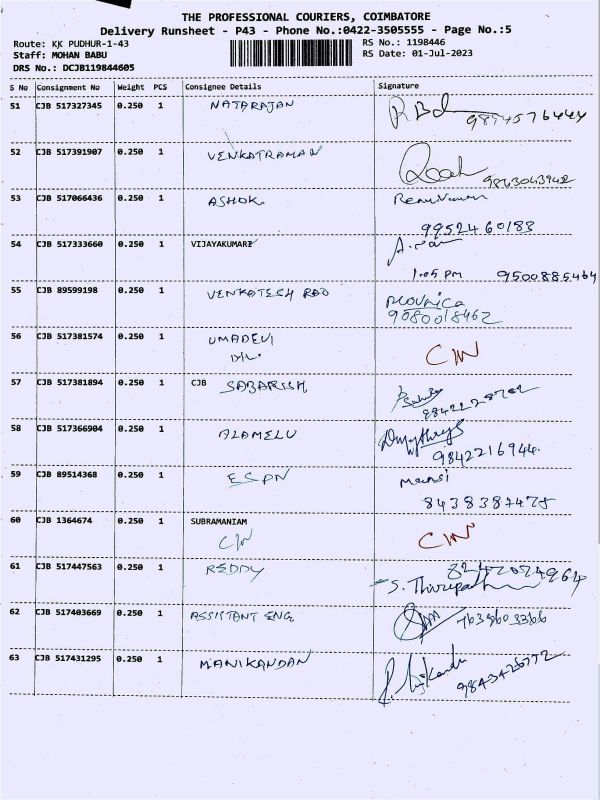 THE PROFESSIONAL COURIERS, COIMBATORE
Delivery Runsheet - P43 - Phone No.:0422-3505555 - Page No.:5
Route: KK PUDHUR-1-43 RS No.: 1198446
Staff: MOHAN BABU RS Date: 01-Jul-2023
DRS No.: DCJB119844605
S No Consignment No Weight PCS Consignee Details Signature
51 CJB 517327345 0.250 1 NATARAJAN
52 CJB 517391907 0.250 1 VENKATRAMAN
9863043942
53 CJB 517066436 0.250 1 ASHOK
9952460183
54 CJB 517333660 0.250 1 VIJAYAKUMARI
1.05 PM 9500885464
55 CJB 89599198 0.250 1 VENKATESH RAO MOUNICA
9080018462
56 CJB 517381574 0.250 1 UMADEVI
57 CJB 517381894 0.250 1 CJB SABARISH
58 CJB 517366904 0.250 1 ALAMELU
9842216944
59 CJB 89514368 0.250 1 ESPN
8438387475
60 CJB 1364674 0.250 1 SUBRAMANIAM
61 CJB 517447563 0.250 1 REDDY
62 CJB 517403669 0.250 1 ASSISTANT ENG
63 CJB 517431295 0.250 1 MANIKANDAN